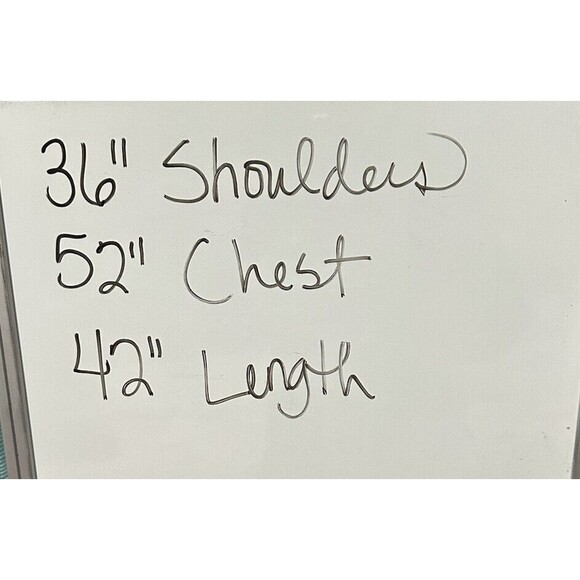 36" Shoulders
52" Chest
42" Length